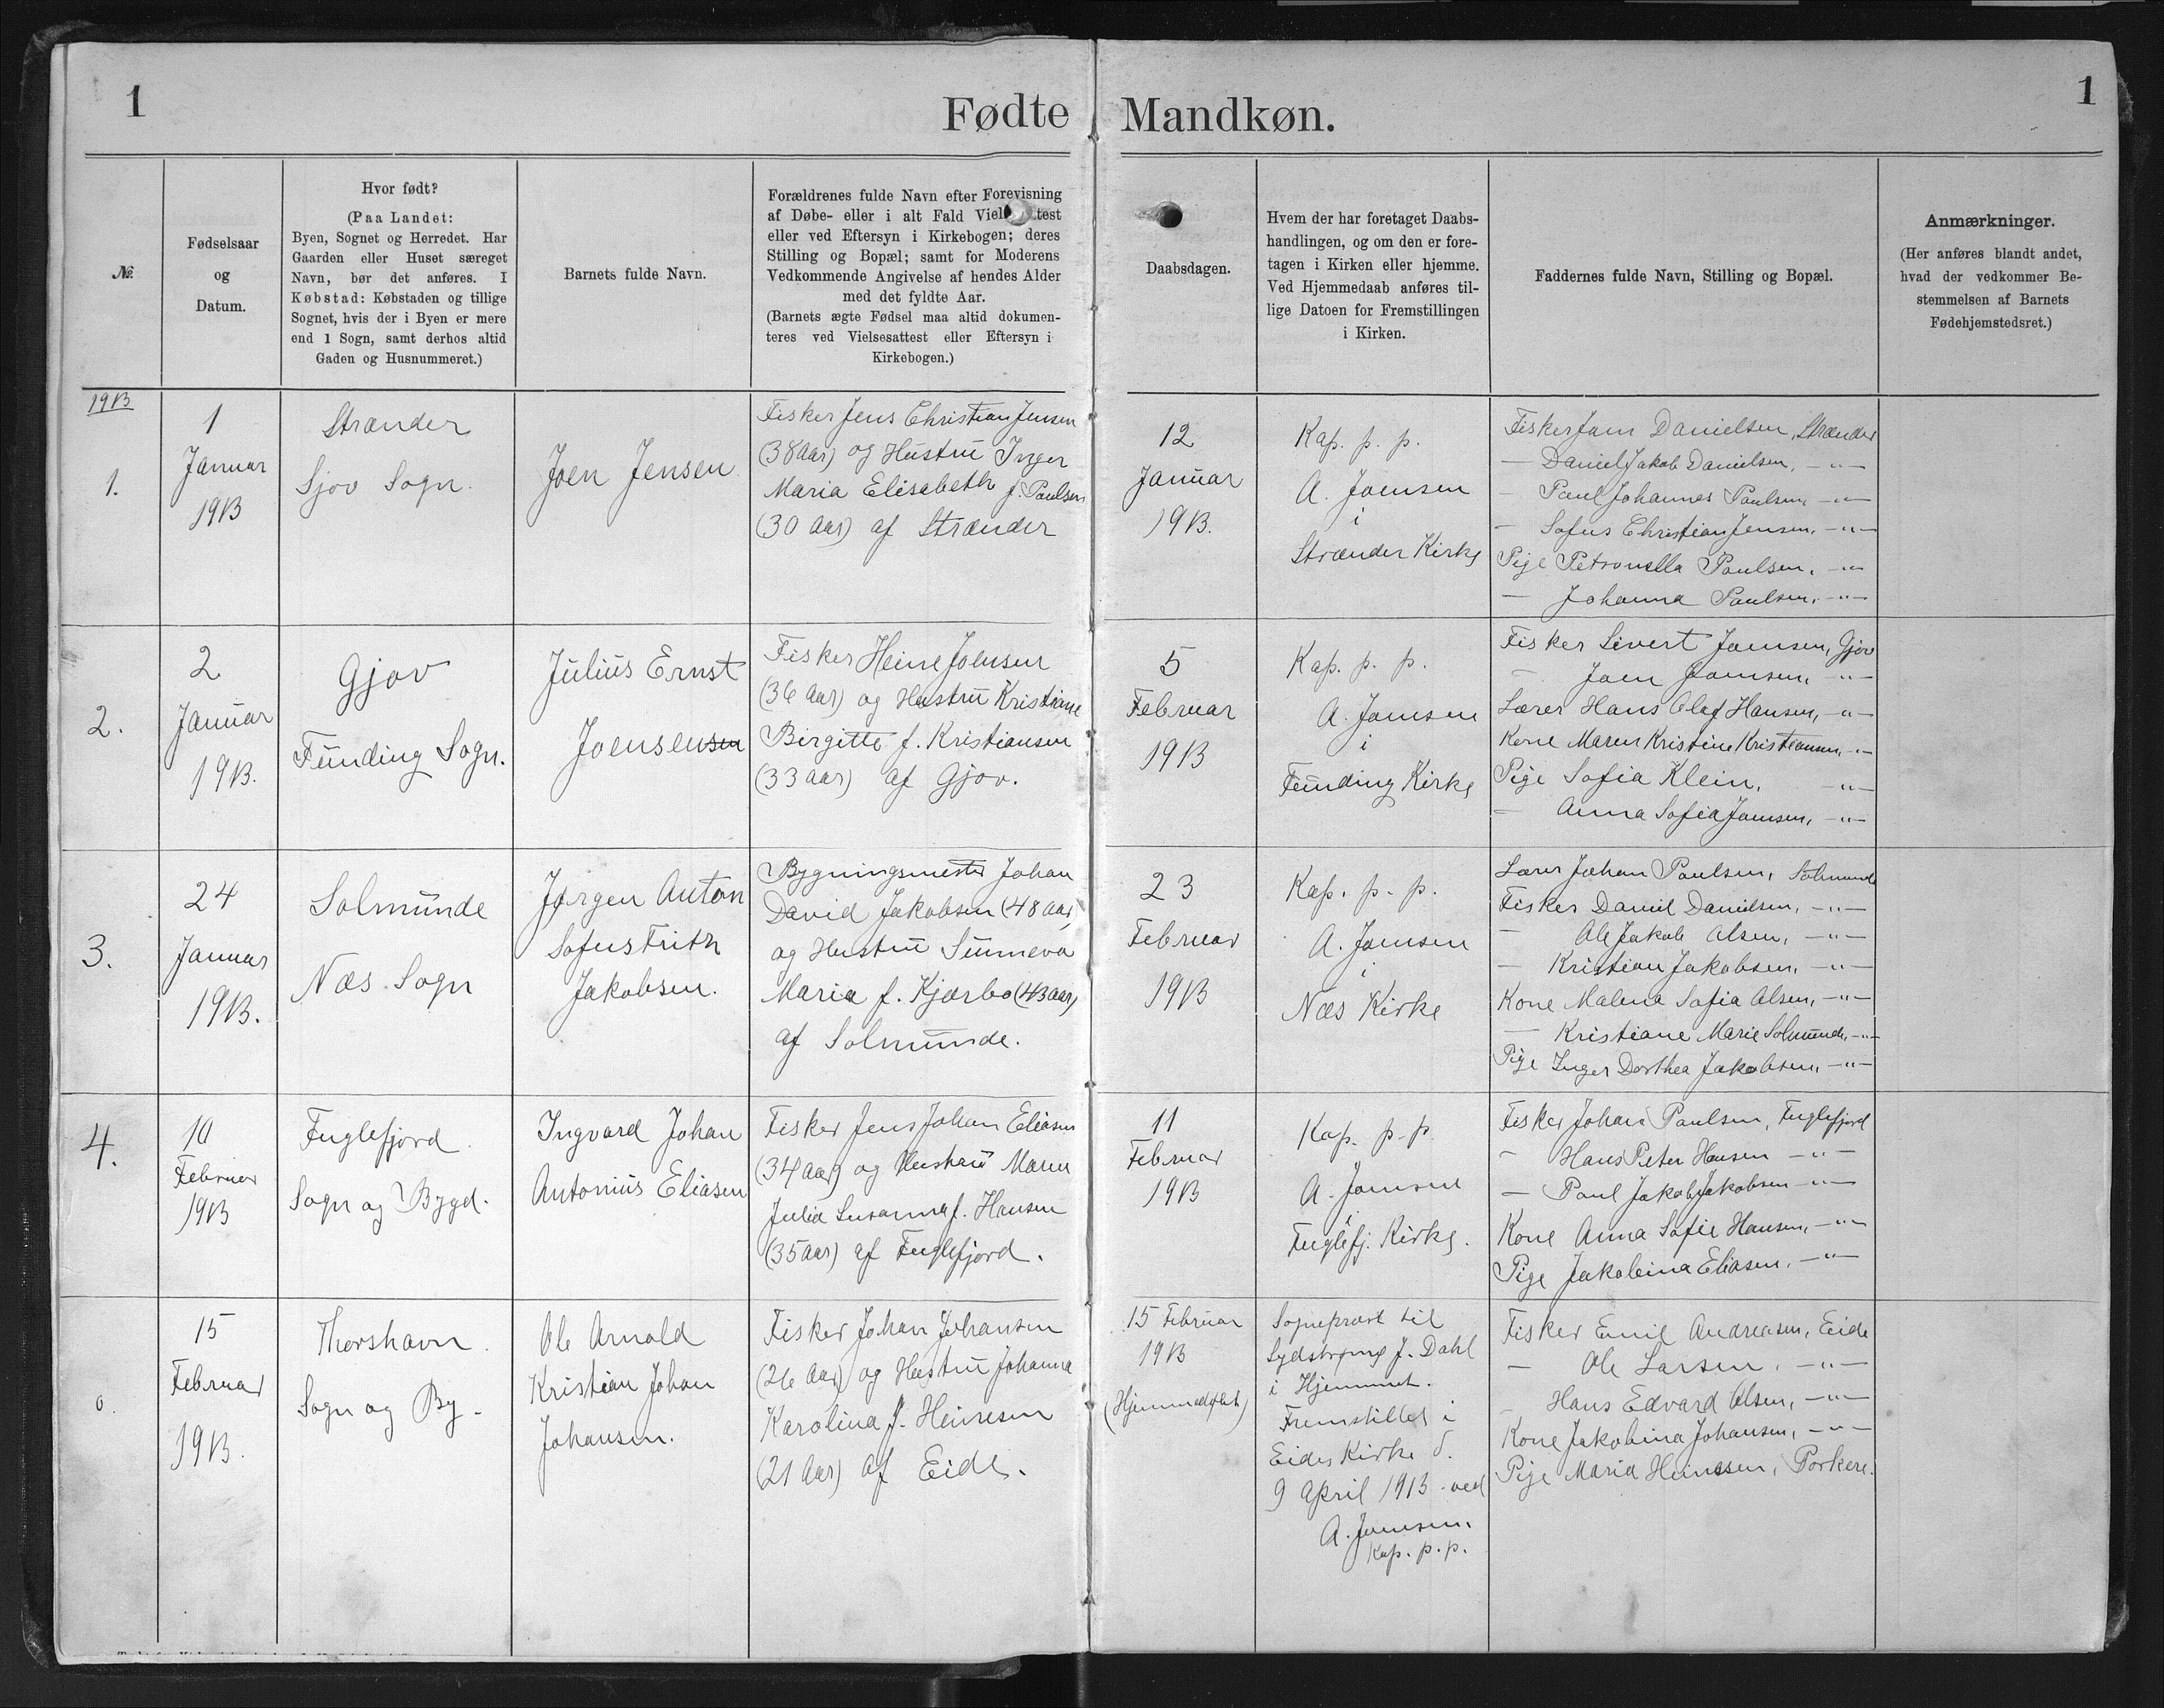 1
Fødte
Mandkøn.
1
№.
Fødselsaar
og
Datum.
Hvor født?
(Paa Landet:
Byen, Sognet og Herredet. Har
Gaarden eller Huset særeget
Navn, bør det anføres. I
Købstad: Købstaden og tillige
Sognet, hvis der i Byen er mere
end 1 Sogn, samt derhos altid
Gaden og Husnummeret.)
Barnets fulde Navn.
Forældrenes fulde Navn efter Forevisning
af Døbe- eller i alt Fald test
eller ved Eftersyn i Kirkebogen; deres
Stilling og Bopæl; samt for Moderens
Vedkommende Angivelse af hendes Alder
med det fyldte Aar.
(Barnets ægte Fødsel maa altid dokumen-
teres ved Vielsesattest eller Eftersyn i
Kirkebogen.)
Daabsdagen.
Hvem der har foretaget Daabs-
handlingen, og om den er fore-
tagen i Kirken eller hjemme.
Ved Hjemmedaab anføres til-
lige Datoen for Fremstillingen
i Kirken.
Faddernes fulde Navn, Stilling og Bopæl.
Anmærkninger.
(Her anføres blandt andet,
hvad der vedkommer Be-
stemmelsen af Barnets
Fødehjemstedsret.)
1913
1.
1
Januar
1913
Strænder
Sjov Sogn.
Joen Jensen
Fisker Jens Christian Jensen
(38 Aar) og Hustru Inger
Maria Elisabeth f. Paulsen
(30 Aar) af Strænder
12
Januar
1913.
Kap. p. p.
A. Joensen
i
Strænder Kirke
Fisker Joen Danielsen, Strænder
— Daniel Jakob Danielsen, —"—
— Paul Johannes Paulsen, —"—
— Sofus Christian Jensen, —"—
Pige Petronella Paulsen, —"—
— Johanna Paulsen, —"—
2.
2
Januar
1913.
Gjov
Funding Sogn.
Julius Ernst
Joensensen
Fisker Heine Joensen
(36 Aar) og Hustru Kristiane
Birgitte f. Kristiansen
(33 Aar) af Gjov.
5
Februar
1913
Kap. p. p.
A. Joensen
i
Funding Kirke
Fisker Sivert Joensen, Gjov
— Joen Joensen, —"—
Lærer Hans Olaf Hansen, —"—
Kone Maren Kristine Kristiansen, —"—
Pige Sofia Klein, —"—
— Anna Sofia Joensen, —"—
3.
24
Januar
1913.
Solmunde
Næs Sogn
Jørgen Anton
Sofus Frith
Jakobsen.
Bygningsmester Johan
David Jakobsen (48 Aar)
og Hustru Sunneva
Maria f. Kjærbo (43 Aar)
af Solmunde.
23
Februar
1913
Kap. p. p.
A. Joensen
i
Næs Kirke
Lærer Johan Paulsen, Solmunde
Fisker Daniel Danielsen, —"—
— Ole Jakob Olsen, —"—
— Kristian Jakobsen, —"—
Kone Malena Sofia Olsen, —"—
— Kristiane Marie Solmunde, —"—
Pige Inger Dorthea Jakobsen, —"—
4.
10
Februar
1913
Fuglefjord
Sogn og Bygd.
Ingvard Johan
Antonius Eliasen
Fisker Jens Johan Eliasen
(34 Aar) og Hustru Maren
Julia Susanna f. Hansen
(35 Aar) af Fuglefjord.
11
Februar
1913
Kap. p. p.
A. Joensen
i
Fuglefj. Kirke.
Fisker Johan Paulsen, Fuglefjord
— Hans Peter Hansen —"—
— Paul Jakob Jakobsen —"—
Kone Anna Sofie Hansen, —"—
Pige Jakobina Eliasen, —"—
0.
15
Februar
1913.
Thorshavn
Sogn og By.
Ole Arnold
Kristian Johan
Johansen.
Fisker Johan Johansen
(26 Aar) og Hustru Johanna
Karolina f. Heinesen
(21 Aar) af Eide.
15 Februar
1913
(Hjemmedøbt)
Sognepræst til
Sydstrømø J. Dahl
i Hjemmet.
Fremstillet i
Eides Kirke d.
9 April 1913 ved
A. Joensen.
Kap. p. p.
Fisker Emil Andreasen, Eide
— Ole Larsen, —"—
— Hans Edvard Olsen, —"—
Kone Jakobina Johansen, —"—
Pige Maria Heinesen, Porkere.